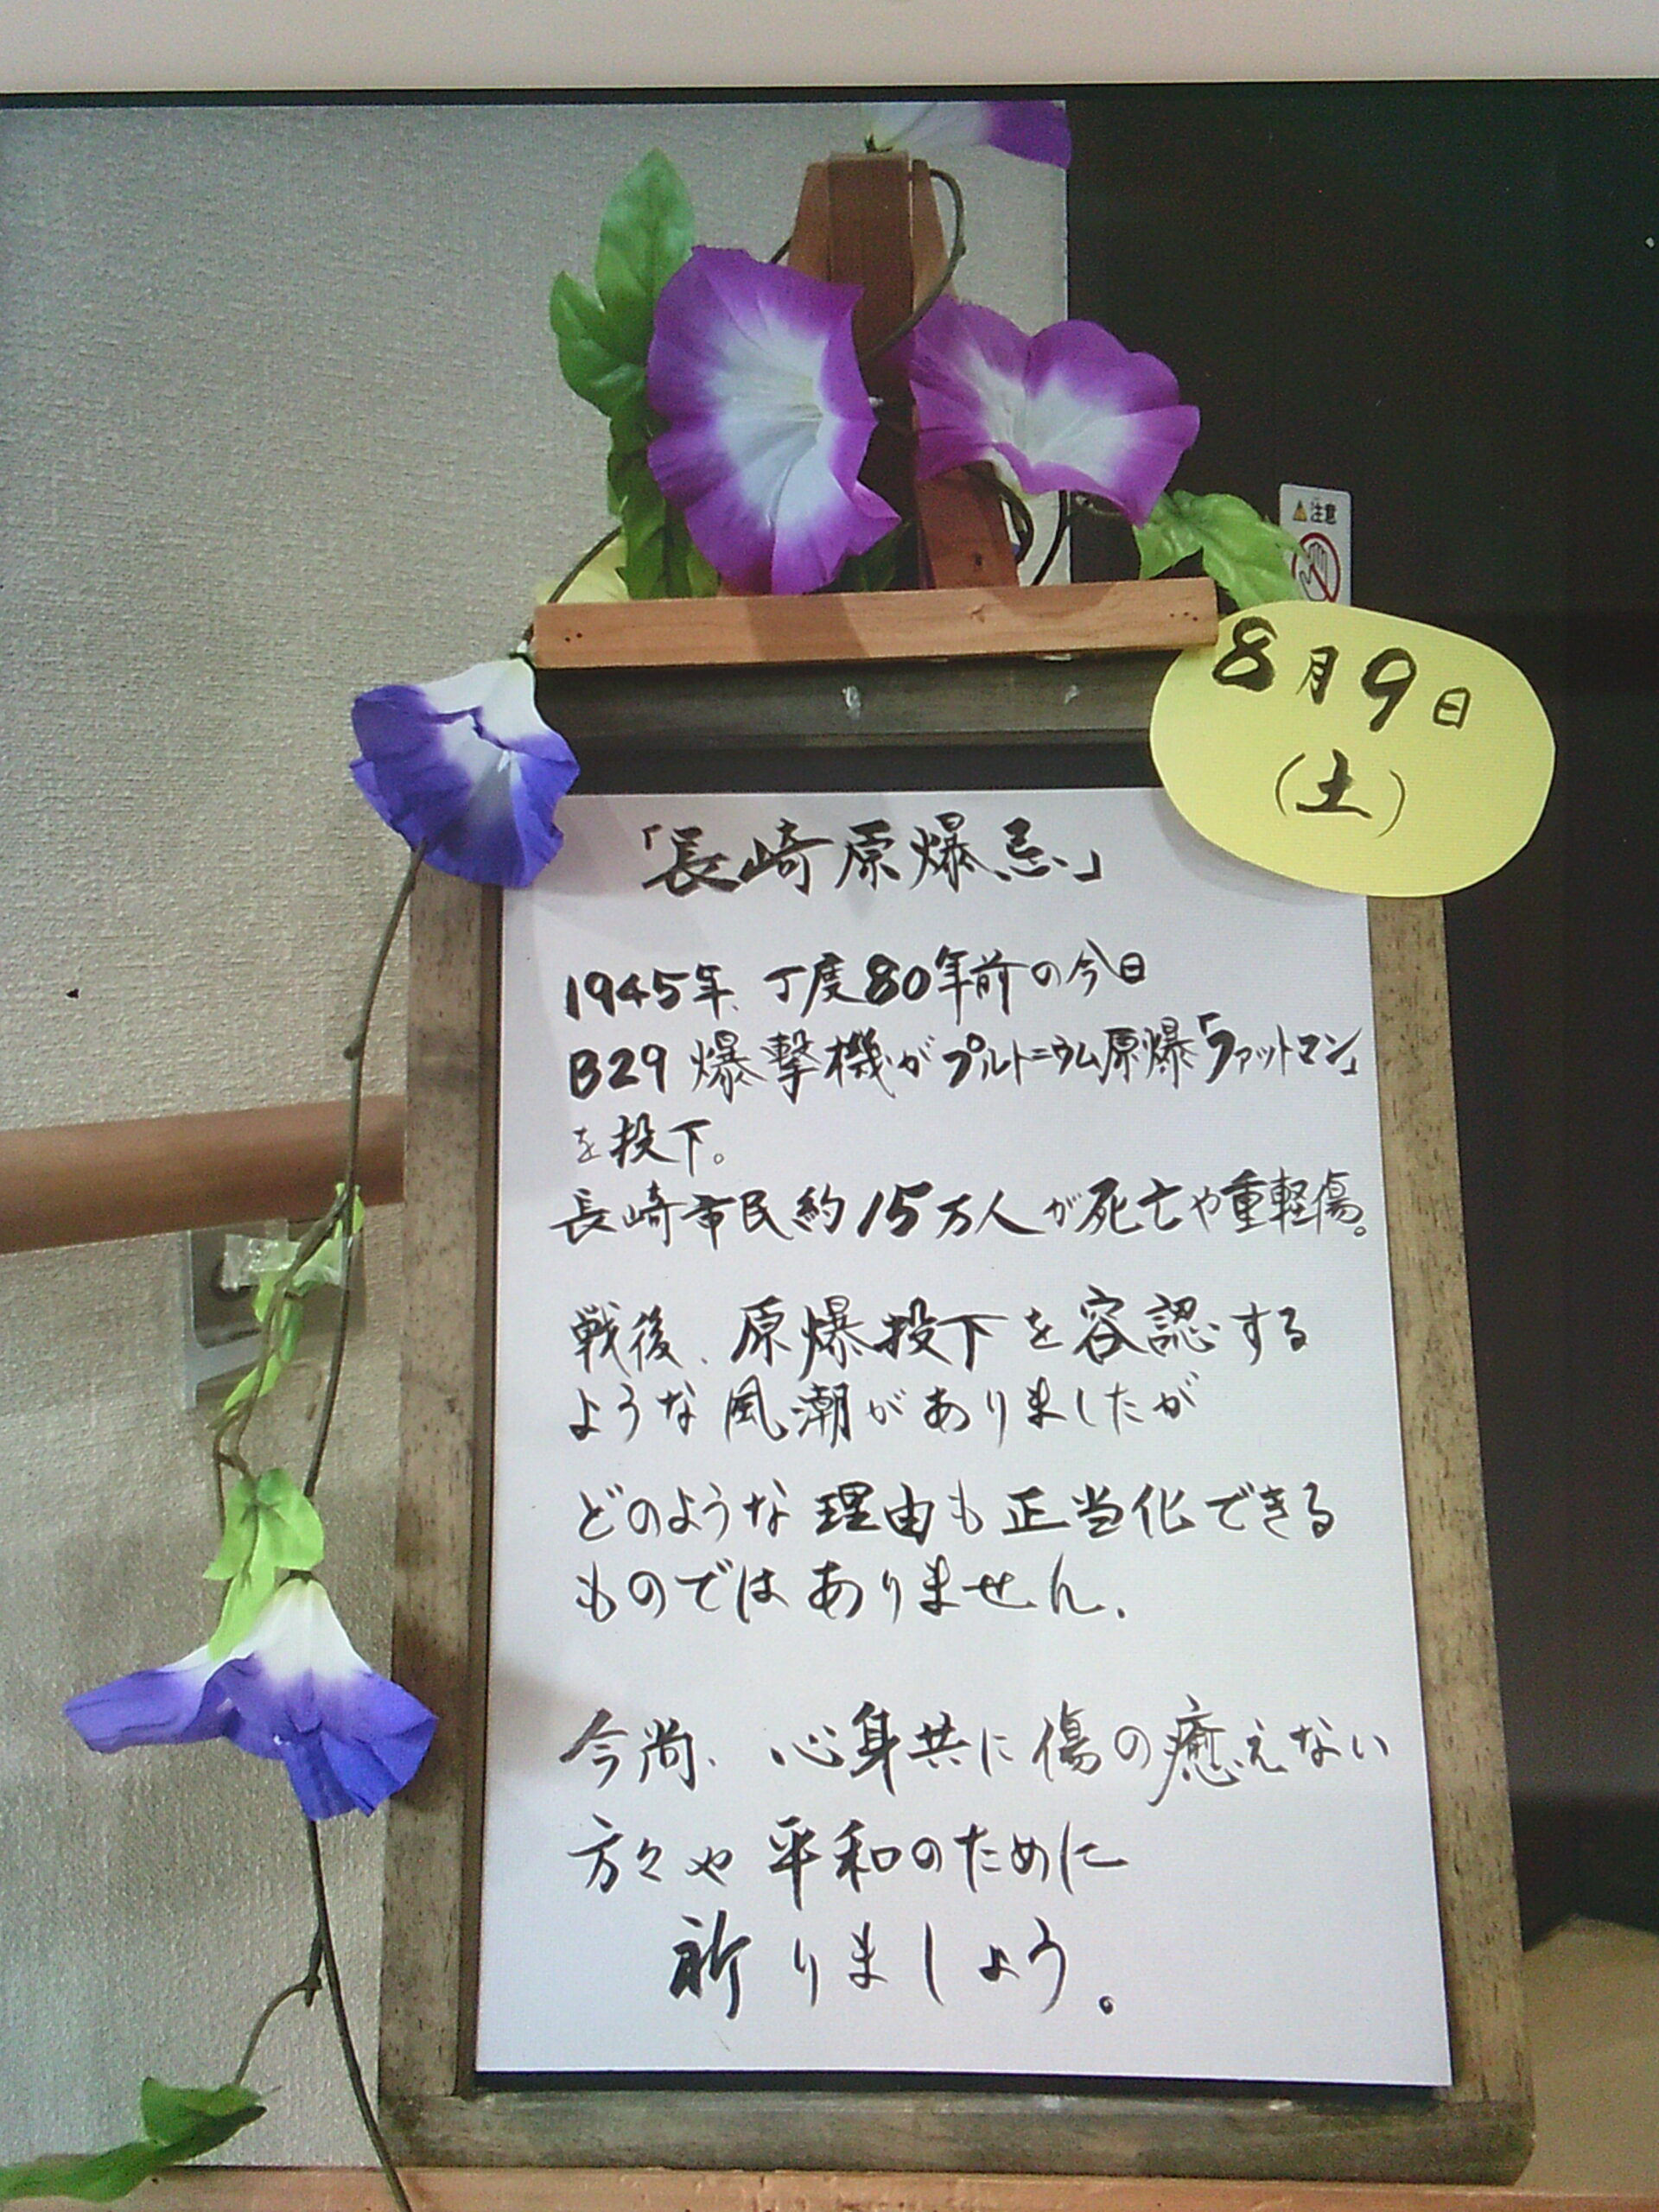 注意
8月9日
(土)
「長崎原爆忌」
1945年、丁度80年前の今日
B29爆撃機がプルトニウム原爆「ファットマン」
を投下。
長崎市民約15万人が死亡や重軽傷。
戦後、原爆投下を容認する
ような風潮がありましたが
どのような理由も正当化できる
ものではありません。
今尚、心身共に傷の癒えない
方々や平和のために
祈りましょう。